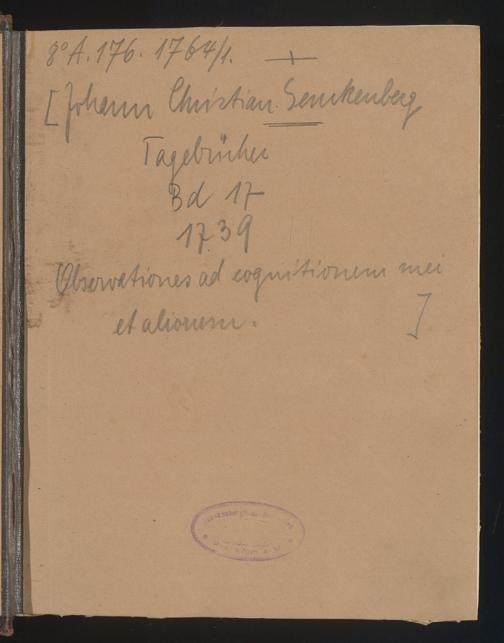 8° A. 176. 1764/1.
[Johann Christian Senckenberg
Tagebücher
Bd 17
1739
Observationes ad cognitionem mei
et aliorum.]